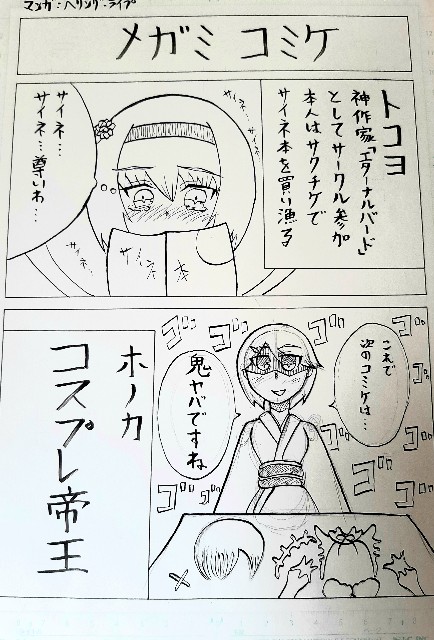 マンガ:ヘリング・ライブ
メガミ コミケ
トコヨ
神作家「エターナルバード」
としてサークル参加
本人はサクチケで
サイネ本を買い漁る
サイネ…サイネ…
サイネ…
サイネ…尊いわ…
サイネ…
サイネ本
これで
次のコミケは…
鬼ヤバですね
ゴゴ
ゴゴ
ゴゴ
ゴゴ
ゴゴ
ゴゴ
ゴゴ
ゴゴ
ゴゴ
ホノカ
コスプレ帝王